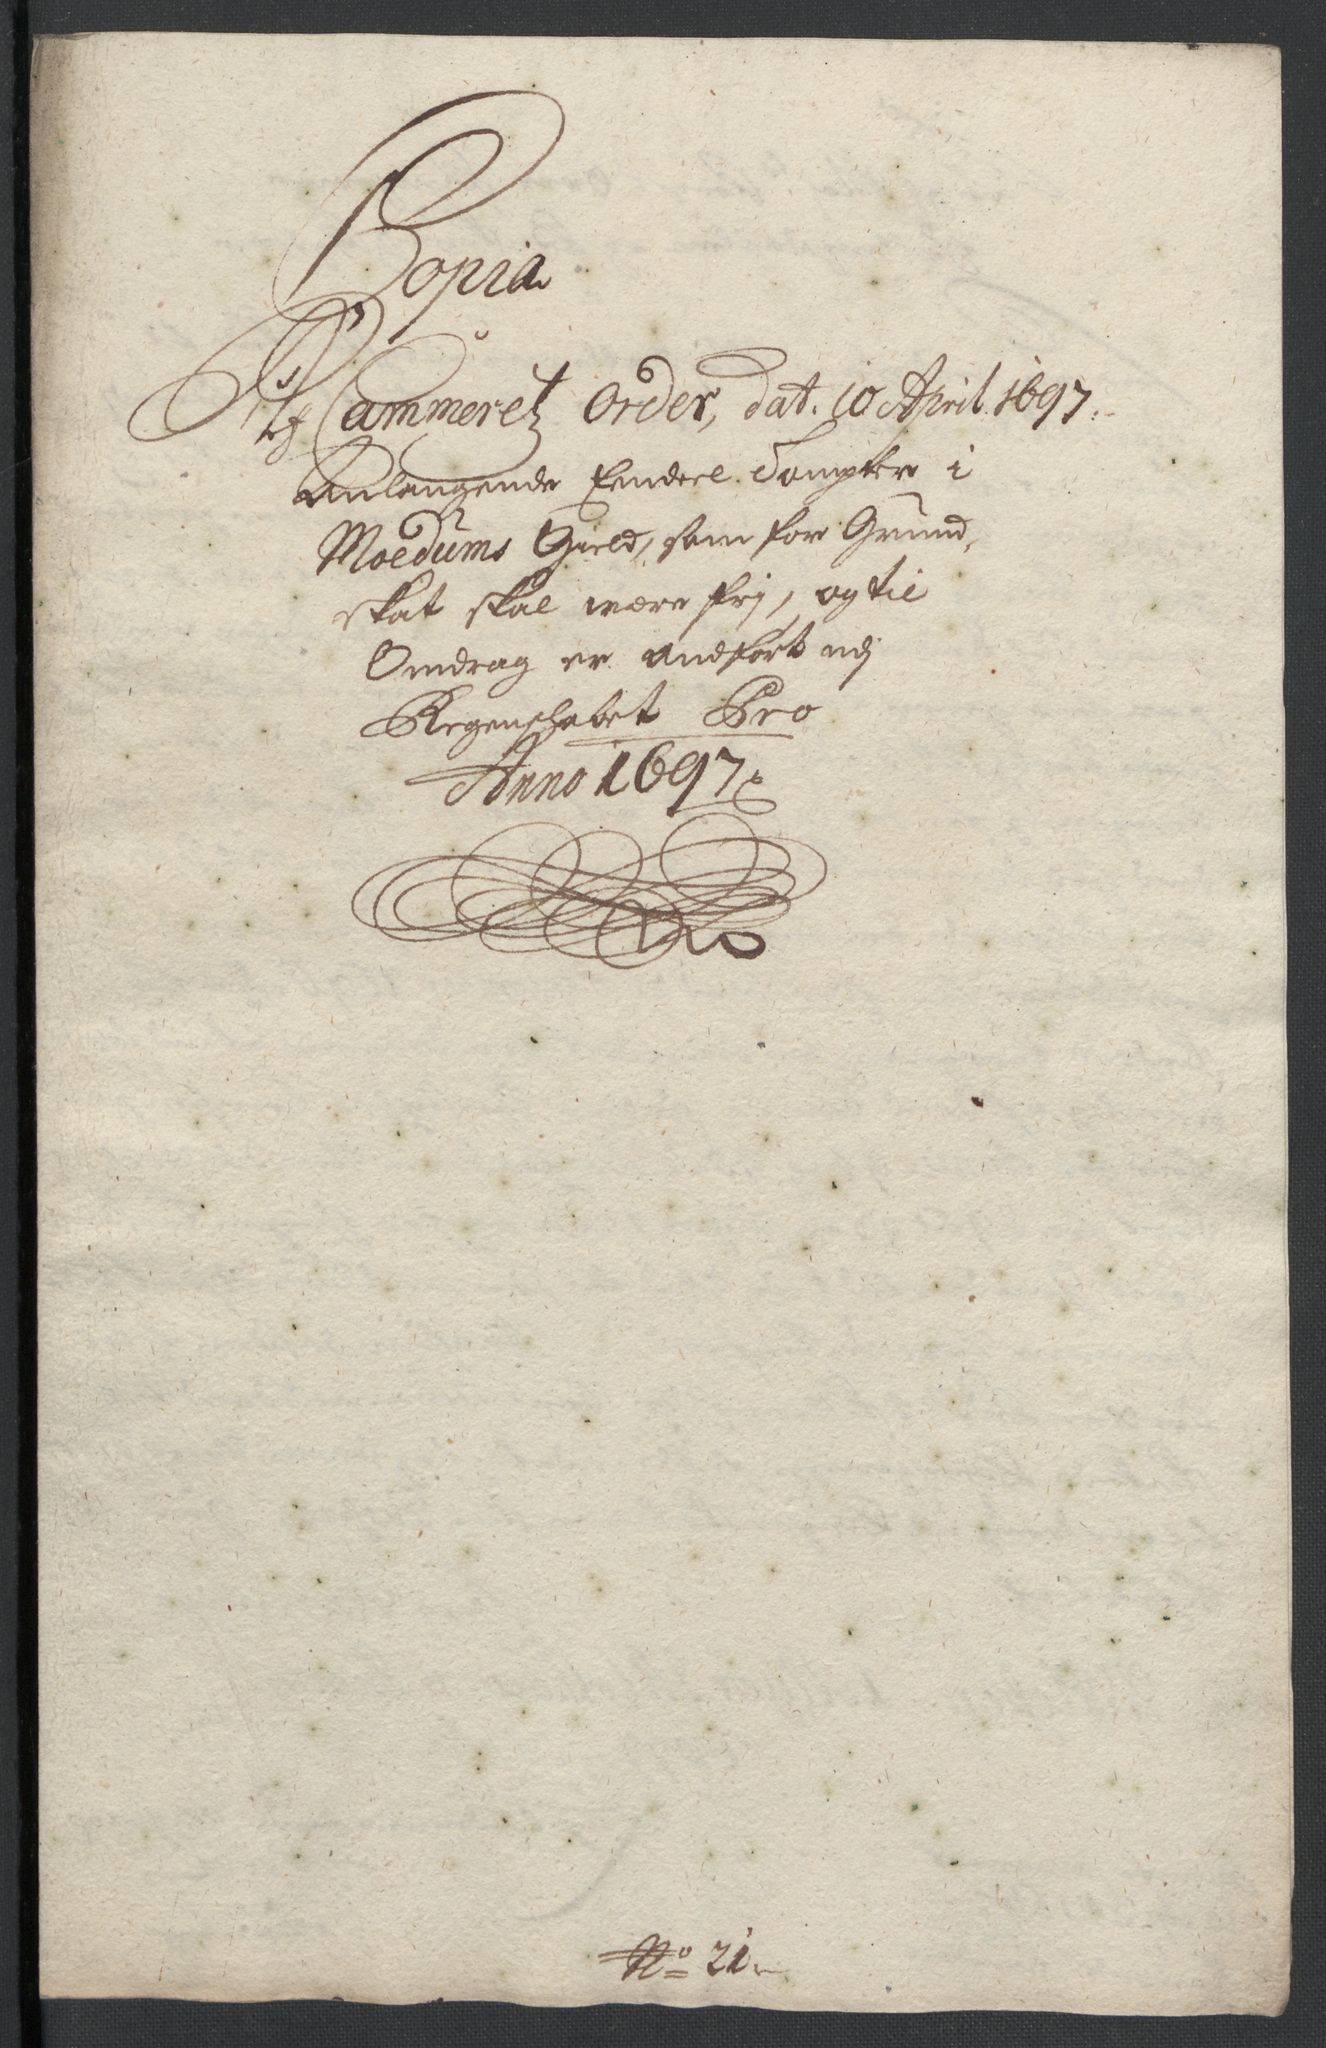 Copia
Af Cammeretz Order, dat. 10 April 1697.
Anlangende Eendeel Tompter i
Moedums Gield, som for Grund,
skat skal were frj, og til
Omdrag er Andført udj
Regenschabet Pro
Anno 1697
No 21.